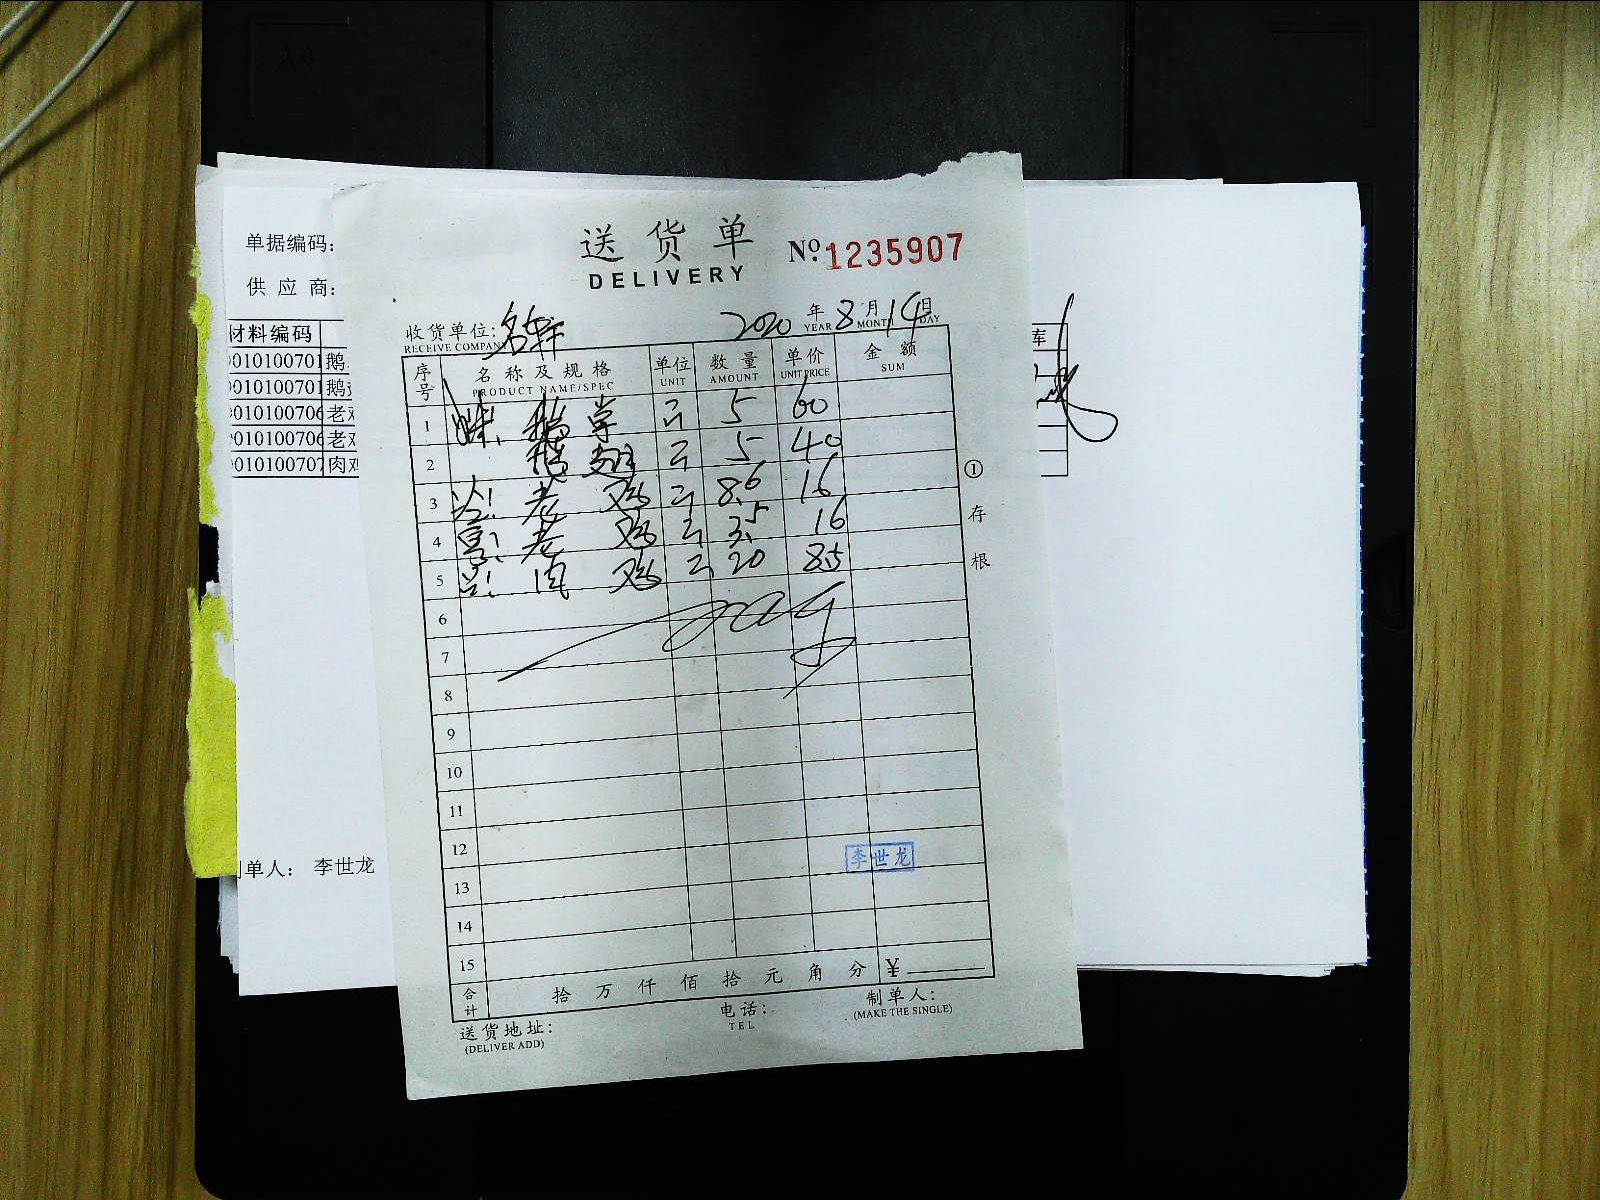 送货单
DELIVERY
№ 1235907
单据编码：
供应商：
收货单位：名轩 2020年8月14日
RECEIVE COMPANY YEAR MONTH DAY
序号 名称及规格 单位 数量 单价 金额
PRODUCT NAME/SPEC UNIT AMOUNT UNIT PRICE SUM
材料编码 库
01010070 鹅
01010070 鹅
010100706 老
010100706 老
01010070 肉鸡
1 鹅掌 5 60
2 鹅翅 5 40
3 老鸡 8.6 16
4 老鸡 3.5 16
5 肉鸡 20 85
6
7
8
9
10
11
12
13
14
15
①存根
李世龙
合计 拾万仟佰拾元角分 ¥
送货地址： 电话： 制单人：
(DELIVER ADD) TEL (MAKE THE SINGLE)
制单人： 李世龙